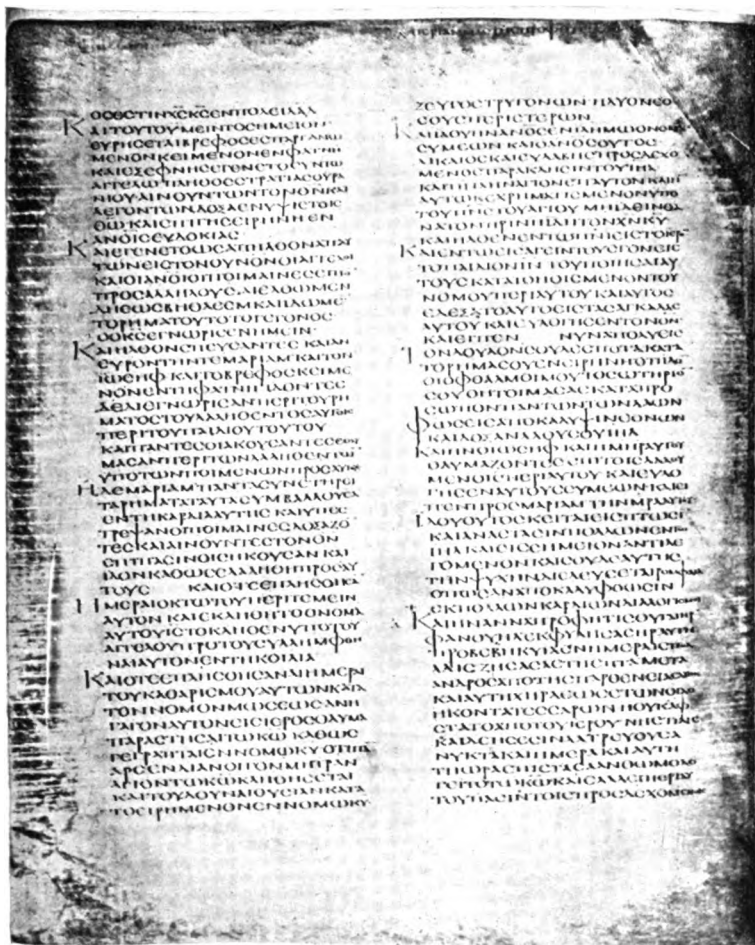 ΟϹΕϹΤΙΝΧϹΚϹΕΝΠΟΛΕΙΔΑΔ
ΚΑΙΤΟΥΤΟΥΜΕΙΝΤΟϹΗΜΕΙΟΝ
ΕΥΡΗϹΕΤΑΙΒΡΕΦΟϹΕϹΠΑΡΓΑΝΩ
ΜΕΝΟΝΚΕΙΜΕΝΟΝΕΝΦΑΤΝΗ
ΚΑΙΕΞΕΦΝΗϹΕΓΕΝΕΤΟϹΥΝΤΩ
ΑΓΓΕΛΩΠΛΗΘΟϹϹΤΡΑΤΙΑϹΟΥΡΑ
ΝΙΟΥΑΙΝΟΥΝΤΩΝΤΟΝΘΝΚΑΙ
ΛΕΓΟΝΤΩΝΔΟΞΑΕΝΥΨΙϹΤΟΙϹ
ΘΩΚΑΙΕΠΙΓΗϹΕΙΡΗΝΗΕΝ
ΑΝΟΙϹΕΥΔΟΚΙΑϹ
ΚΑΙΕΓΕΝΕΤΟΩϹΑΠΗΛΘΟΝΑΠΑΥ
ΤΩΝΕΙϹΤΟΝΟΥΝΟΝΟΙΑΓΓΕΛΟΙ
ΚΑΙΟΙΑΝΟΙΟΙΠΟΙΜΑΙΝΕϹΕΙΠΟ
ΠΡΟϹΑΛΛΗΛΟΥϹΔΙΕΛΘΩΜΕΝ
ΔΗΕΩϹΒΗΘΛΕΕΜΚΑΙΙΔΩΜΕ
ΤΟΡΗΜΑΤΟΥΤΟΤΟΓΕΓΟΝΟϹ
ΟΟΚϹΕΓΝΩΡΙϹΕΝΗΜΕΙΝ
ΚΑΙΗΛΘΟΝϹΠΕΥϹΑΝΤΕϹΚΑΙΑΝ
ΕΥΡΟΝΤΗΝΤΕΜΑΡΙΑΜΚΑΙΤΟΝ
ΙΩϹΗΦΚΑΙΤΟΒΡΕΦΟϹΚΕΙΜΕ
ΝΟΝΕΝΤΗΦΑΤΝΗΙΔΟΝΤΕϹ
ΔΕΔΙΕΓΝΩΡΙϹΑΝΠΕΡΙΤΟΥΡΗ
ΜΑΤΟϹΤΟΥΛΑΛΗΘΕΝΤΟϹΑΥΤΟΙϹ
ΠΕΡΙΤΟΥΠΑΙΔΙΟΥΤΟΥΤΟΥ
ΚΑΙΠΑΝΤΕϹΟΙΑΚΟΥϹΑΝΤΕϹΕΘΑΥ
ΜΑϹΑΝΠΕΡΙΤΩΝΛΑΛΗΘΕΝΤΩ
ΥΠΟΤΩΝΠΟΙΜΕΝΩΝΠΡΟϹΑΥΤΟΥϹ
ΗΔΕΜΑΡΙΑΜΠΑΝΤΑϹΥΝΕΤΗΡΕΙ
ΤΑΡΗΜΑΤΑΤΑΥΤΑϹΥΜΒΑΛΛΟΥϹΑ
ΕΝΤΗΚΑΡΔΙΑΑΥΤΗϹΚΑΙΥΠΕϹ
ΤΡΕΨΑΝΟΙΠΟΙΜΑΙΝΕϹΔΟΞΑΖΟ
ΤΕϹΚΑΙΑΙΝΟΥΝΤΕϹΤΟΝΘΝ
ΕΠΙΠΑϹΙΝΟΙϹΗΚΟΥϹΑΝΚΑΙ
ΙΔΟΝΚΑΘΩϹΕΛΑΛΗΘΗΠΡΟϹΑΥ
ΤΟΥϹ ΚΑΙΟΤΕΕΠΛΗϹΘΗϹΑ
ΗΜΕΡΑΙΟΚΤΩΤΟΥΠΕΡΙΤΕΜΕΙΝ
ΑΥΤΟΝΚΑΙΕΚΛΗΘΗΤΟΟΝΟΜΑ
ΑΥΤΟΥΙϹΤΟΚΛΗΘΕΝΥΠΟΤΟΥ
ΑΓΓΕΛΟΥΠΡΟΤΟΥϹΥΛΛΗΜΦΘΗ
ΝΑΙΑΥΤΟΝΕΝΤΗΚΟΙΛΙΑ
ΚΑΙΟΤΕΕΠΛΗϹΘΗϹΑΝΑΙΗΜΕΡΑΙ
ΤΟΥΚΑΘΑΡΙϹΜΟΥΑΥΤΩΝΚΑΤΑ
ΤΟΝΝΟΜΟΝΜΩϹΕΩϹΑΝΗ
ΓΑΓΟΝΑΥΤΟΝΕΙϹΙΕΡΟϹΟΛΥΜΑ
ΠΑΡΑϹΤΗϹΑΙΤΩΚΩΚΑΘΩϹ
ΓΕΓΡΑΠΤΑΙΕΝΝΟΜΩΚΥΟΤΙΠΑ
ΑΡϹΕΝΔΙΑΝΟΙΓΟΝΜΗΤΡΑΝ
ΑΓΙΟΝΤΩΚΩΚΛΗΘΗϹΕΤΑΙ
ΚΑΙΤΟΥΔΟΥΝΑΙΘΥϹΙΑΝΚΑΤΑ
ΤΟΕΙΡΗΜΕΝΟΝΕΝΝΟΜΩΚΥ
ΖΕΥΓΟϹΤΡΥΓΟΝΩΝΗΔΥΟΝΕΟ
ϹΟΥϹΠΕΡΙϹΤΕΡΩΝ
ΚΑΙΙΔΟΥΗΝΑΝΟϹΕΝΙΛΗΜΩΟΝΟΜΑ
ϹΥΜΕΩΝΚΑΙΟΑΝΟϹΟΥΤΟϹ
ΔΙΚΑΙΟϹΚΑΙΕΥΛΑΒΗϹΠΡΟϹΔΕΧΟ
ΜΕΝΟϹΠΑΡΑΚΛΗϹΙΝΤΟΥΙΗΛ
ΚΑΙΠΝΑΗΝΑΓΙΟΝΕΠΑΥΤΟΝΚΑΙΗ
ΑΥΤΩΚΕΧΡΗΜΑΤΙϹΜΕΝΟΝΥΠΟ
ΤΟΥΠΝϹΤΟΥΑΓΙΟΥΜΗΙΔΕΙΝΘΑ
ΝΑΤΟΝΠΡΙΝΗΙΔΗΤΟΝΧΝΚΥ
ΚΑΙΗΛΘΕΝΕΝΤΩΠΝΙΕΙϹΤΟΙΕΡΟ
ΚΑΙΕΝΤΩΕΙϹΑΓΕΙΝΤΟΥϹΓΟΝΕΙϹ
ΤΟΠΑΙΔΙΟΝΙΝΤΟΥΠΟΙΗϹΑΙΑΥ
ΤΟΥϹΚΑΤΑΤΟΕΙΘΙϹΜΕΝΟΝΤΟΥ
ΝΟΜΟΥΠΕΡΙΑΥΤΟΥΚΑΙΑΥΤΟϹ
ΕΔΕΞΑΤΟΑΥΤΟΕΙϹΤΑϹΑΓΚΑΛΑϹ
ΑΥΤΟΥΚΑΙΕΥΛΟΓΗϹΕΝΤΟΝΘΝ
ΚΑΙΕΙΠΕΝ ΝΥΝΑΠΟΛΥΕΙϹ
ΤΟΝΔΟΥΛΟΝϹΟΥΔΕϹΠΟΤΑΚΑΤΑ
ΤΟΡΗΜΑϹΟΥΕΝΕΙΡΗΝΗΟΤΙΙΔΟ
ΟΙΟΦΘΑΛΜΟΙΜΟΥΤΟϹΩΤΗΡΙΟ
ϹΟΥΟΗΤΟΙΜΑϹΑϹΚΑΤΑΠΡΟ
ϹΩΠΟΝΠΑΝΤΩΝΤΩΝΛΑΩΝ
ΦΩϹΕΙϹΑΠΟΚΑΛΥΨΙΝΕΘΝΩΝ
ΚΑΙΔΟΞΑΝΛΑΟΥϹΟΥΙΗΛ
ΚΑΙΗΝΙΩϹΗΦΚΑΙΗΜΗΡΑΥΤΟΥ
ΘΑΥΜΑΖΟΝΤΕϹΕΠΙΤΟΙϹΛΑΛΟΥ
ΜΕΝΟΙϹΠΕΡΙΑΥΤΟΥΚΑΙΕΥΛΟ
ΓΗϹΕΝΑΥΤΟΥϹϹΥΜΕΩΝΚΑΙΕΙ
ΠΕΝΠΡΟϹΜΑΡΙΑΜΤΗΝΜΡΑΑΥΤΟΥ
ΙΔΟΥΟΥΤΟϹΚΕΙΤΑΙΕΙϹΠΤΩϹΙ
ΚΑΙΑΝΑϹΤΑϹΙΝΠΟΛΛΩΝΕΝΤΩ
ΙΗΛΚΑΙΕΙϹϹΗΜΕΙΟΝΑΝΤΙΛΕ
ΓΟΜΕΝΟΝΚΑΙϹΟΥΔΕΑΥΤΗϹ
ΤΗΝΨΥΧΗΝΔΙΕΛΕΥϹΕΤΑΙΡΟΜΦΑΙΑ
ΟΠΩϹΑΝΑΠΟΚΑΛΥΦΘΩϹΙΝ
ΕΚΠΟΛΛΩΝΚΑΡΔΙΩΝΔΙΑΛΟΓΙϹΜΟΙ
ΚΑΙΗΝΑΝΝΑΠΡΟΦΗΤΙϹΘΥΓΑΤΗΡ
ΦΑΝΟΥΗΛΕΚΦΥΛΗϹΑϹΗΡΑΥΤΗ
ΠΡΟΒΕΒΗΚΥΙΑΕΝΗΜΕΡΑΙϹΠΟΛ
ΛΑΙϹΖΗϹΑϹΑΕΤΗΕΠΤΑΜΕΤΑ
ΑΝΔΡΟϹΑΠΟΤΗϹΠΑΡΘΕΝΕΙΑϹΑΥΤΗϹ
ΚΑΙΑΥΤΗΧΗΡΑΕΩϹΕΤΩΝΟΓΔΟ
ΗΚΟΝΤΑΤΕϹϹΑΡΩΝΗΟΥΚΑΦ
ΙϹΤΑΤΟΑΠΟΤΟΥΙΕΡΟΥΝΗϹΤΙΑΙϹ
ΚΑΙΔΕΗϹΕϹΙΝΛΑΤΡΕΥΟΥϹΑ
ΝΥΚΤΑΚΑΙΗΜΕΡΑΚΑΙΑΥΤΗ
ΤΗΩΡΑΕΠΙϹΤΑϹΑΑΝΘΩΜΟΛΟ
ΓΕΙΤΟΤΩΚΩΚΑΙΕΛΑΛΕΙΠΕΡΙΑΥ
ΤΟΥΠΑϹΙΝΤΟΙϹΠΡΟϹΔΕΧΟΜΕΝΟΙϹ